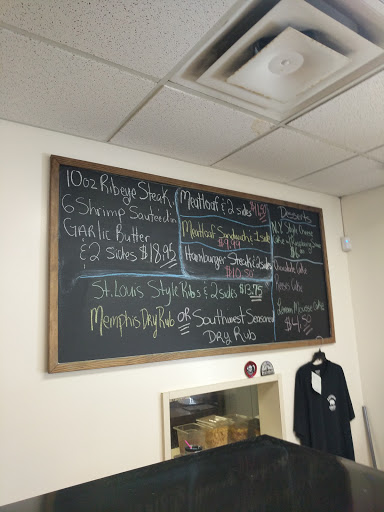 10oz Ribeye Steak
6 Shrimp Sauteed in
GARlic Butter
& 2 sides $18.95
Meatloaf & 2 sides
Meatloaf Sandwich & 1 side
$9.99
Hamburger Steak & 2 sides
$10.50
St. Louis Style Ribs & 2 sides $13.75
Memphis Dry Rub OR Southwest Seasoned
DRy Rub
Desserts
N.Y. Style Cheese
Cake
Chocolate Cake
Lemon Mousse Cake
$4.50